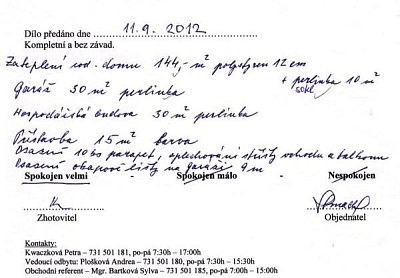 Dílo předáno dne 11.9.2012
Kompletní a bez závad.
Zateplení rod. domu 144,- m² polystyren 12 cm
+ perlinka 10 m²
sokl
Garáž 30 m² perlinka
Hospodářská budova 30 m² perlinka
Přístavba 15 m² barva
Osazení 10 ks parapet, oplechování stříšky vchodu a balkonu
Osazení okapové lišty na garáži 9 m
Spokojen velmi - Spokojen málo - Nespokojen
Zhotovitel Objednatel
Kontakty:
Kwaczková Petra – 731 501 181, po-pá 7:30h – 17:00h
Vedoucí odbytu: Plošková Andrea – 731 501 180, po-pá 7:30h – 15:30h
Obchodní referent – Mgr. Bartková Sylva – 731 501 185, po-pá 7:30h – 15:30h